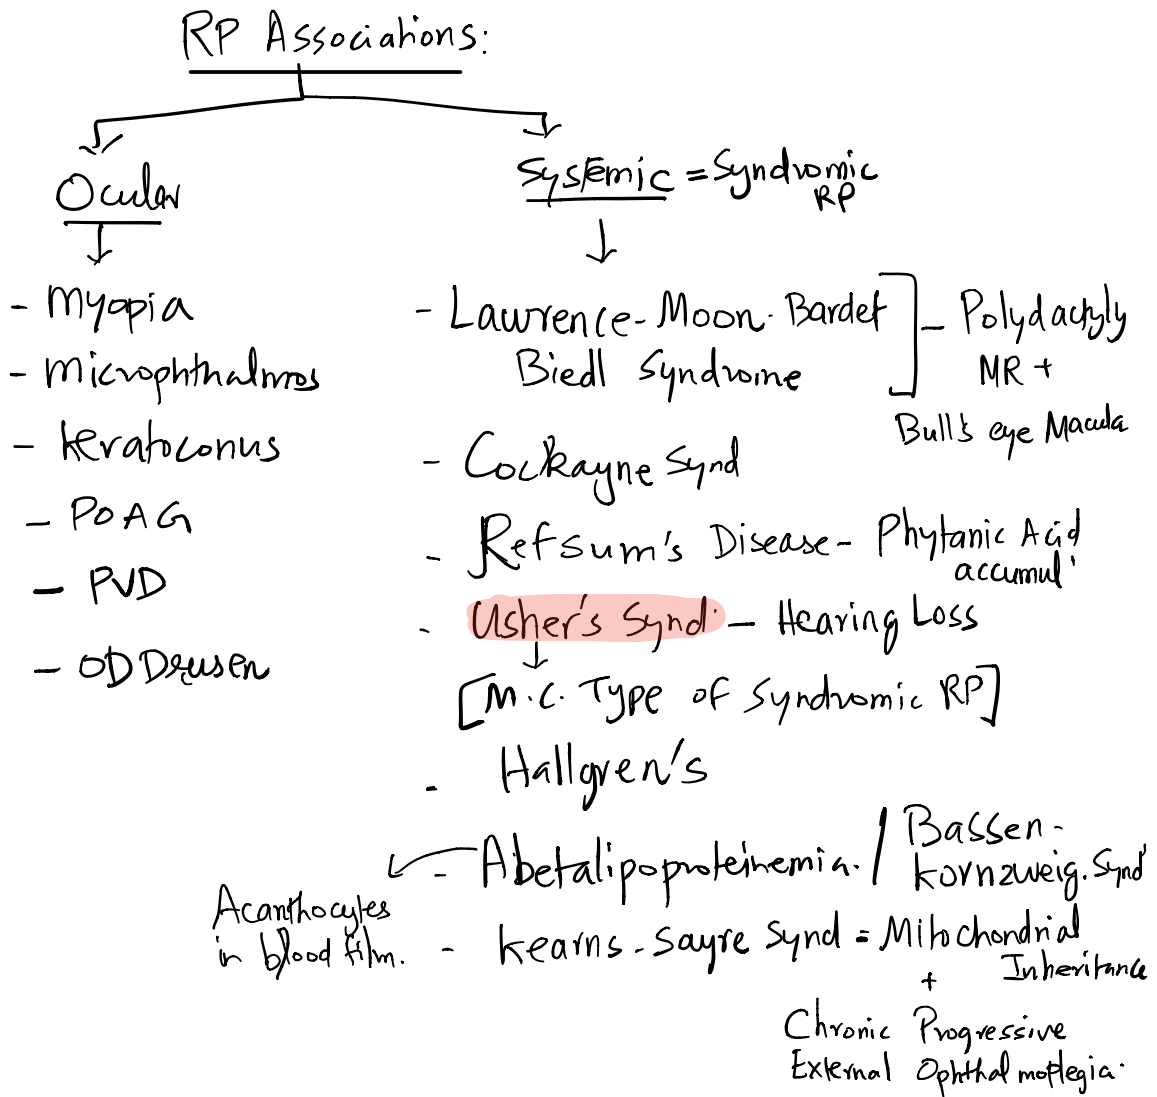 RP Associations:
Ocular
- Myopia
- Microphthalmos
- Keratoconus
- POAG
- PVD
- OD Drusen
Systemic = Syndromic
RP
- Lawrence-Moon. Bardet
Biedl Syndrome
- Polydactyly
MR +
Bull's eye Macula
- Cockayne Synd
- Refsum's Disease - Phytanic Acid
accumul'
- Usher's Synd. - Hearing Loss
[M.C. Type of Syndromic RP]
- Hallgren's
- Abetalipoproteinemia. / Bassen-
Kornzweig. Synd'
Acanthocytes
in blood film.
- Kearns-Sayre Synd = Mitochondrial
Inheritance
+
Chronic Progressive
External Ophthalmoplegia.